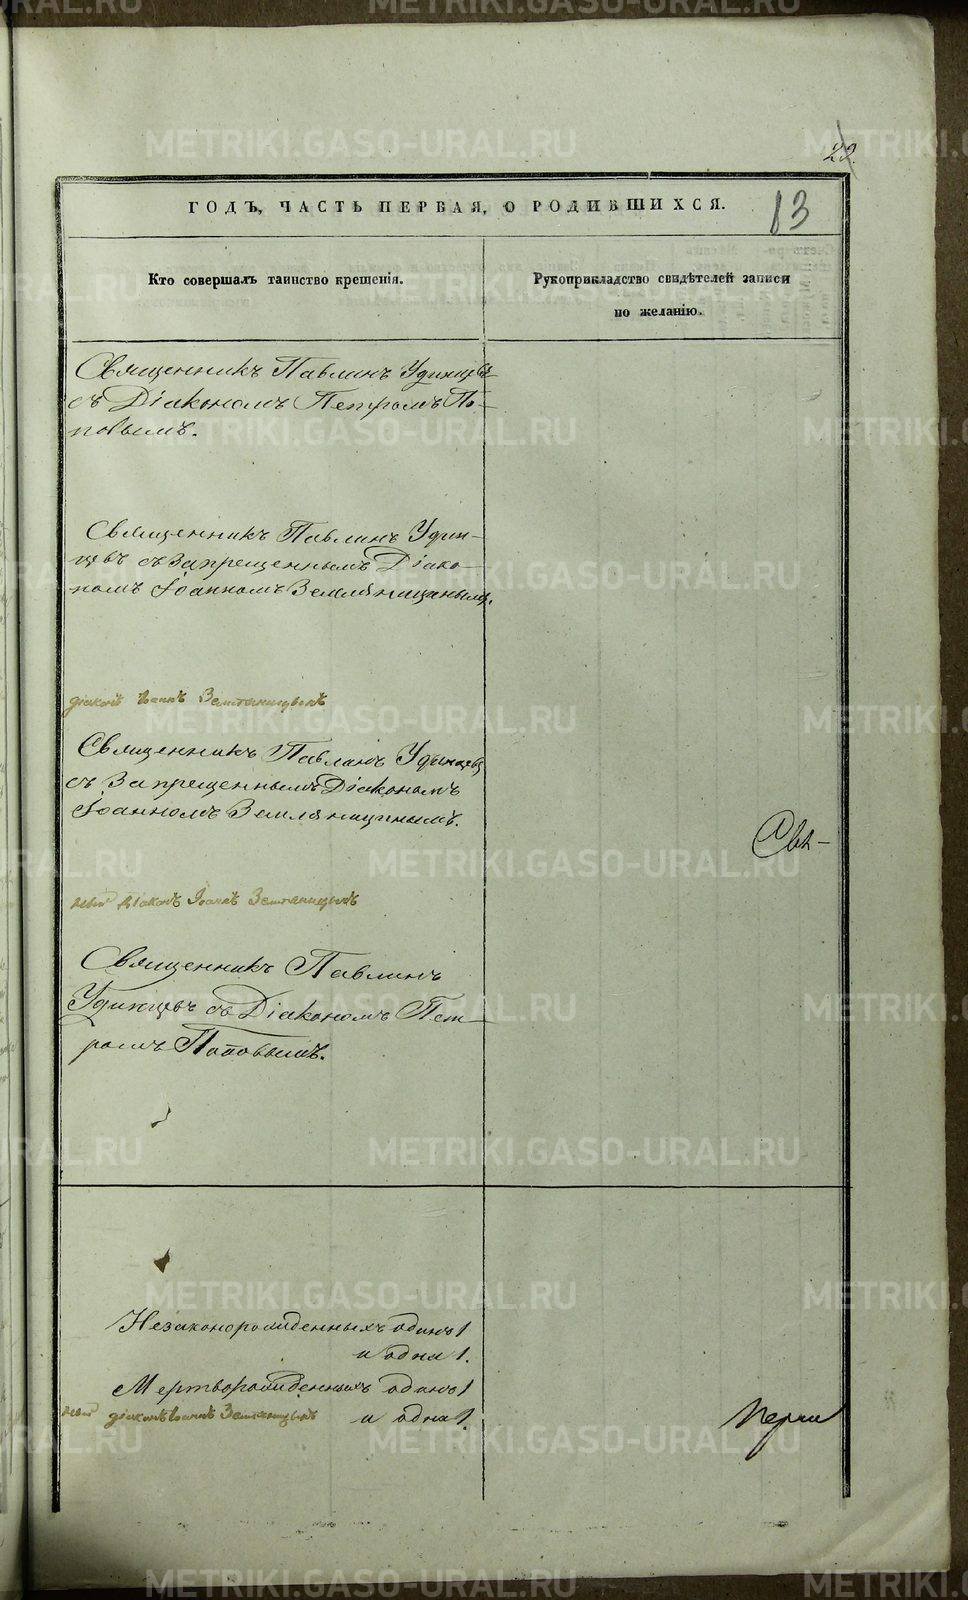 22.
ГОДЪ, ЧАСТЬ ПЕРВАЯ, О РОДИВШИХСЯ.
13
Кто совершалъ таинство крещенія.
Рукоприкладство свидѣтелей записи
по желанію.
Священникъ Павлинъ Удинцевъ
съ Діакономъ Петромъ По-
повымъ.
Священникъ Павлинъ Удин-
цевъ съ Запрещеннымъ Діако-
номъ Іоанномъ Земляницынымъ.
діаконъ Іоаннъ Земляницынъ
Священникъ Павлинъ Удинцевъ
съ Запрещеннымъ Діакономъ
Іоанномъ Земляницынымъ.
Свя-
діаконъ Іоаннъ Земляницынъ
Священникъ Павлинъ
Удинцевъ съ Діакономъ Пет-
ромъ Поповымъ.
Незаконорожденныхъ одинъ 1
и одна 1.
Мертворожденныхъ одинъ 1
и одна 1.
діаконъ Іоаннъ Земляницынъ
METRIKI.GASO-URAL.RU